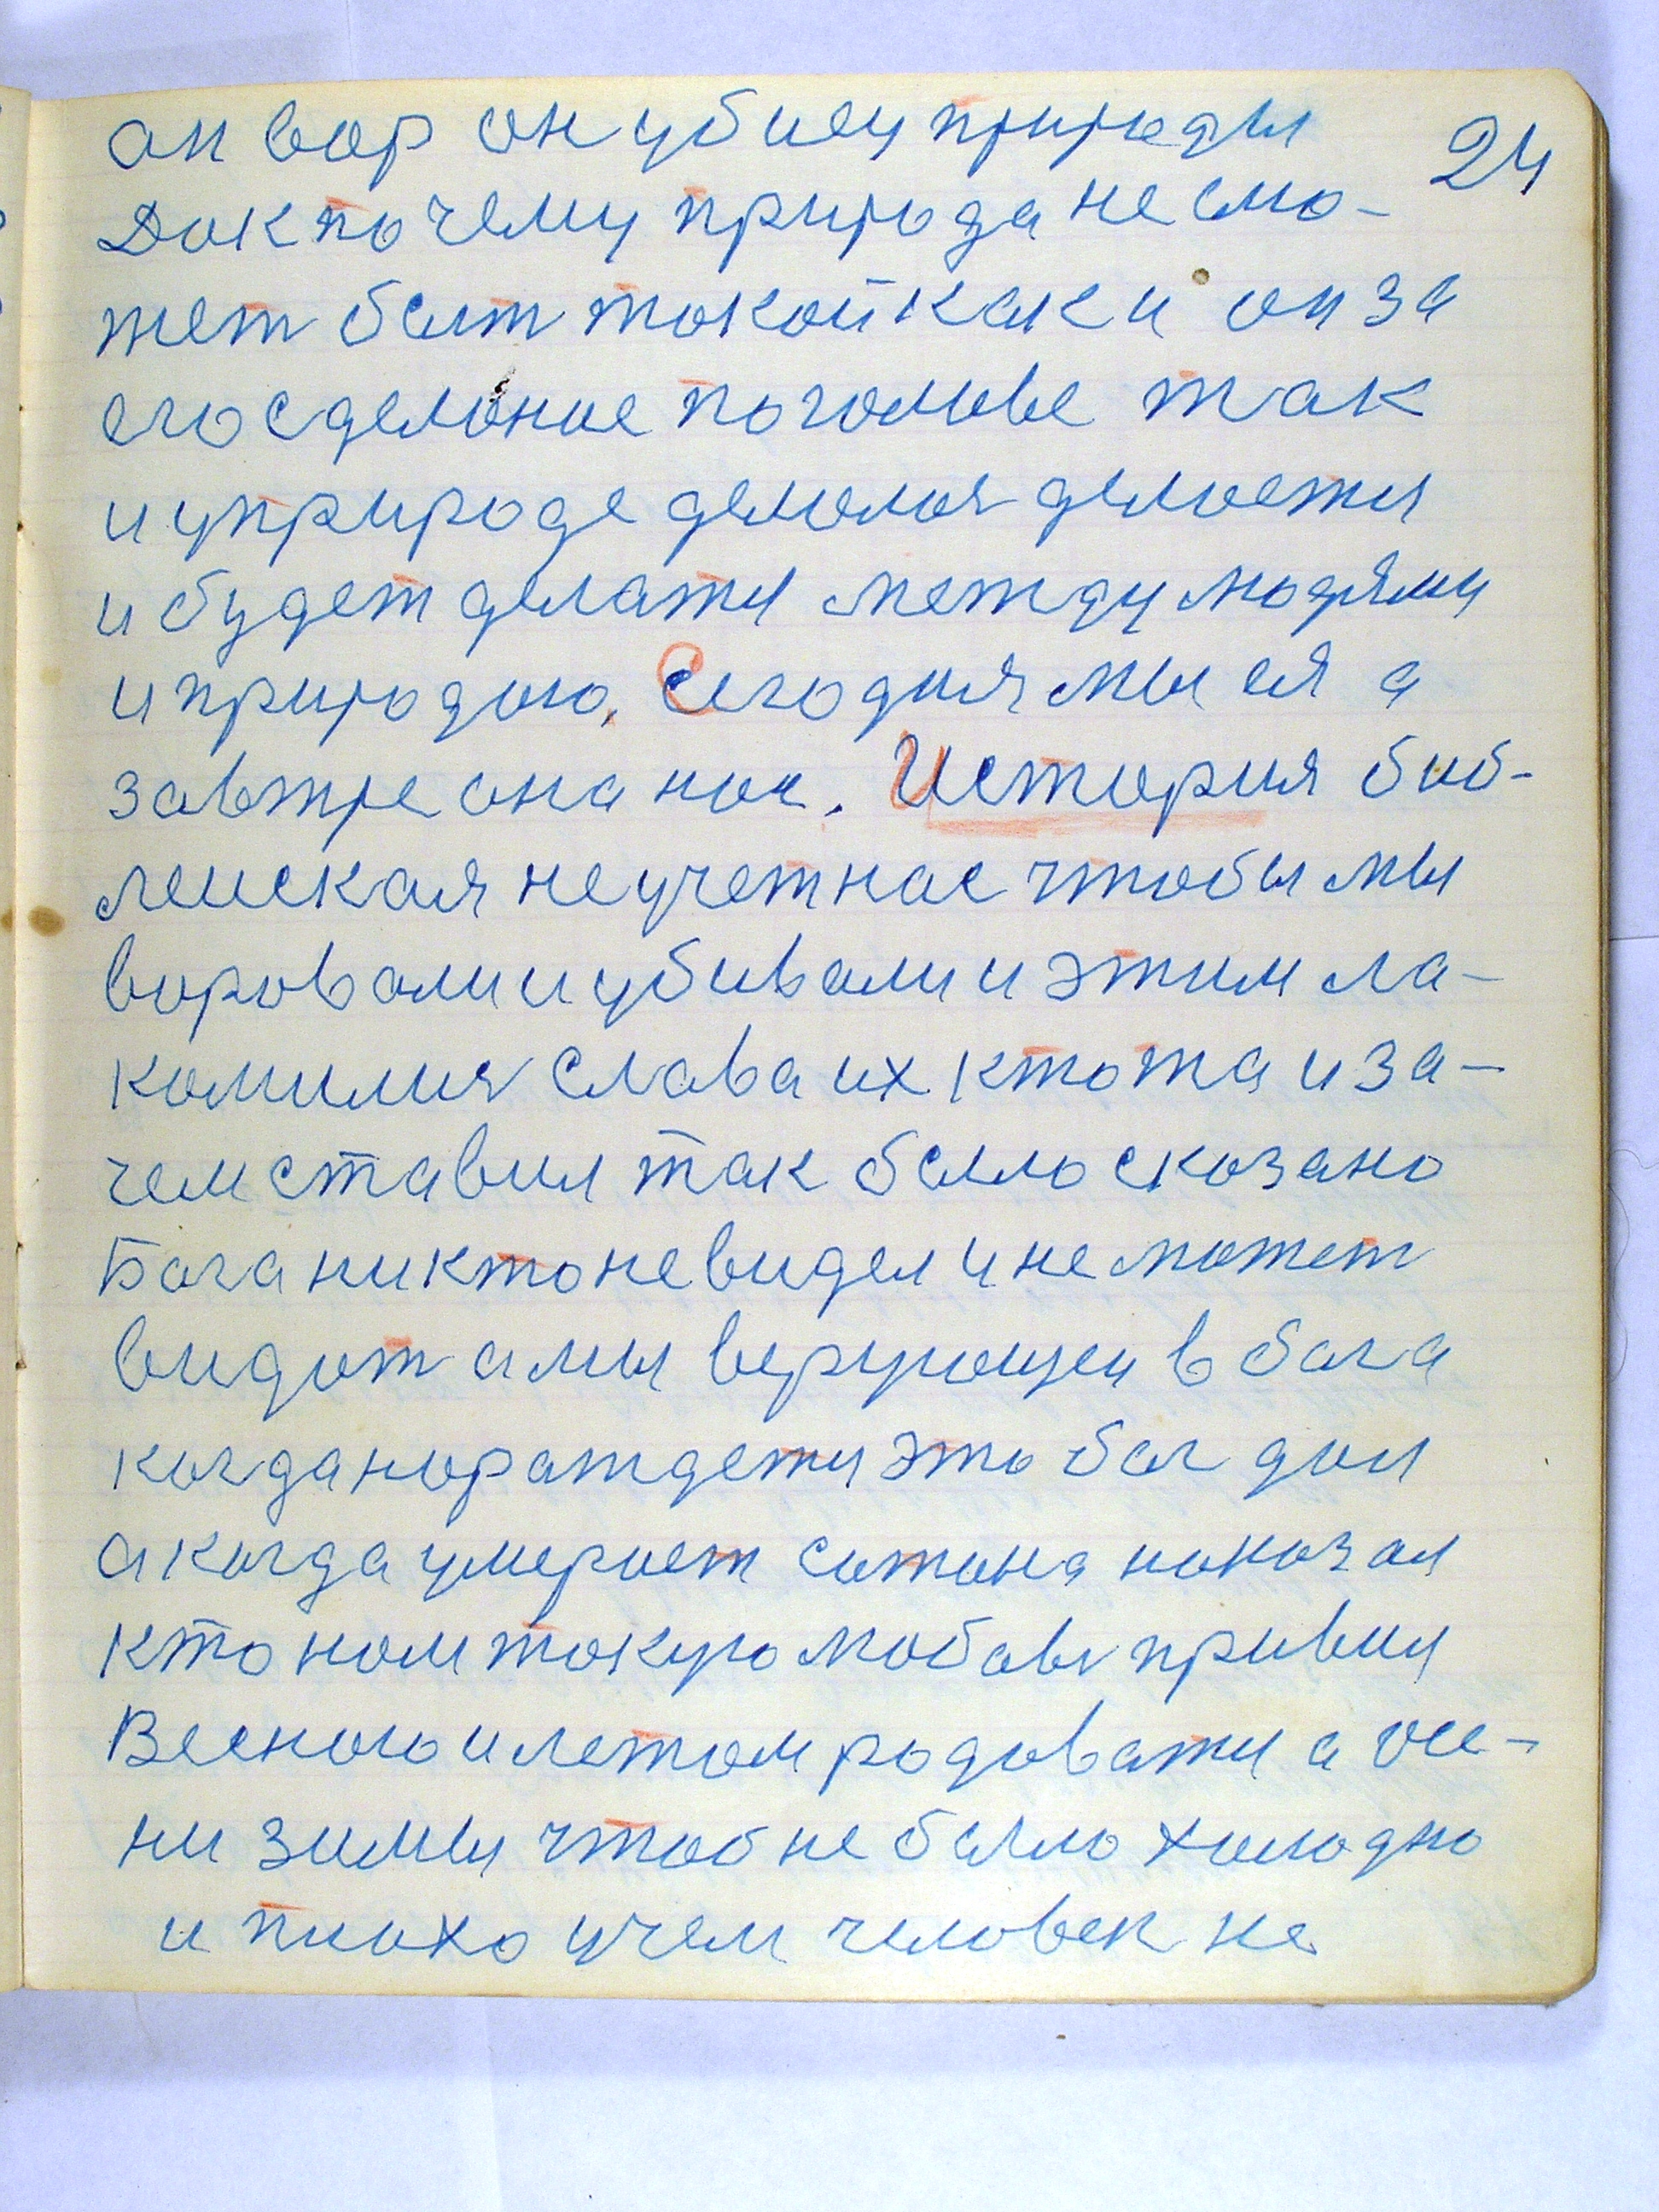 он вор он убиец природы
24
Дак почему природа не смо-
жет быт такой как и он за
его сделаное поголовье так
и уприроде делолся делается
и будет делатся между людями
и природою. Сегодня мы ея а
завтре она нас. История биб-
лейская не учет нас чтобы мы
воровали и убивали и этим ла-
комился слава их кто то и за-
чем ставил так было сказано
Бога никто не видел и не может
видит а мы верующеи в бога
когда нораждется это бог дал
а когда умероет сотона наказал
кто нам токую любовь привил
Весною и летом родоватся а осе-
ни зимы чтоб не было холодно
и плохо учем человек не